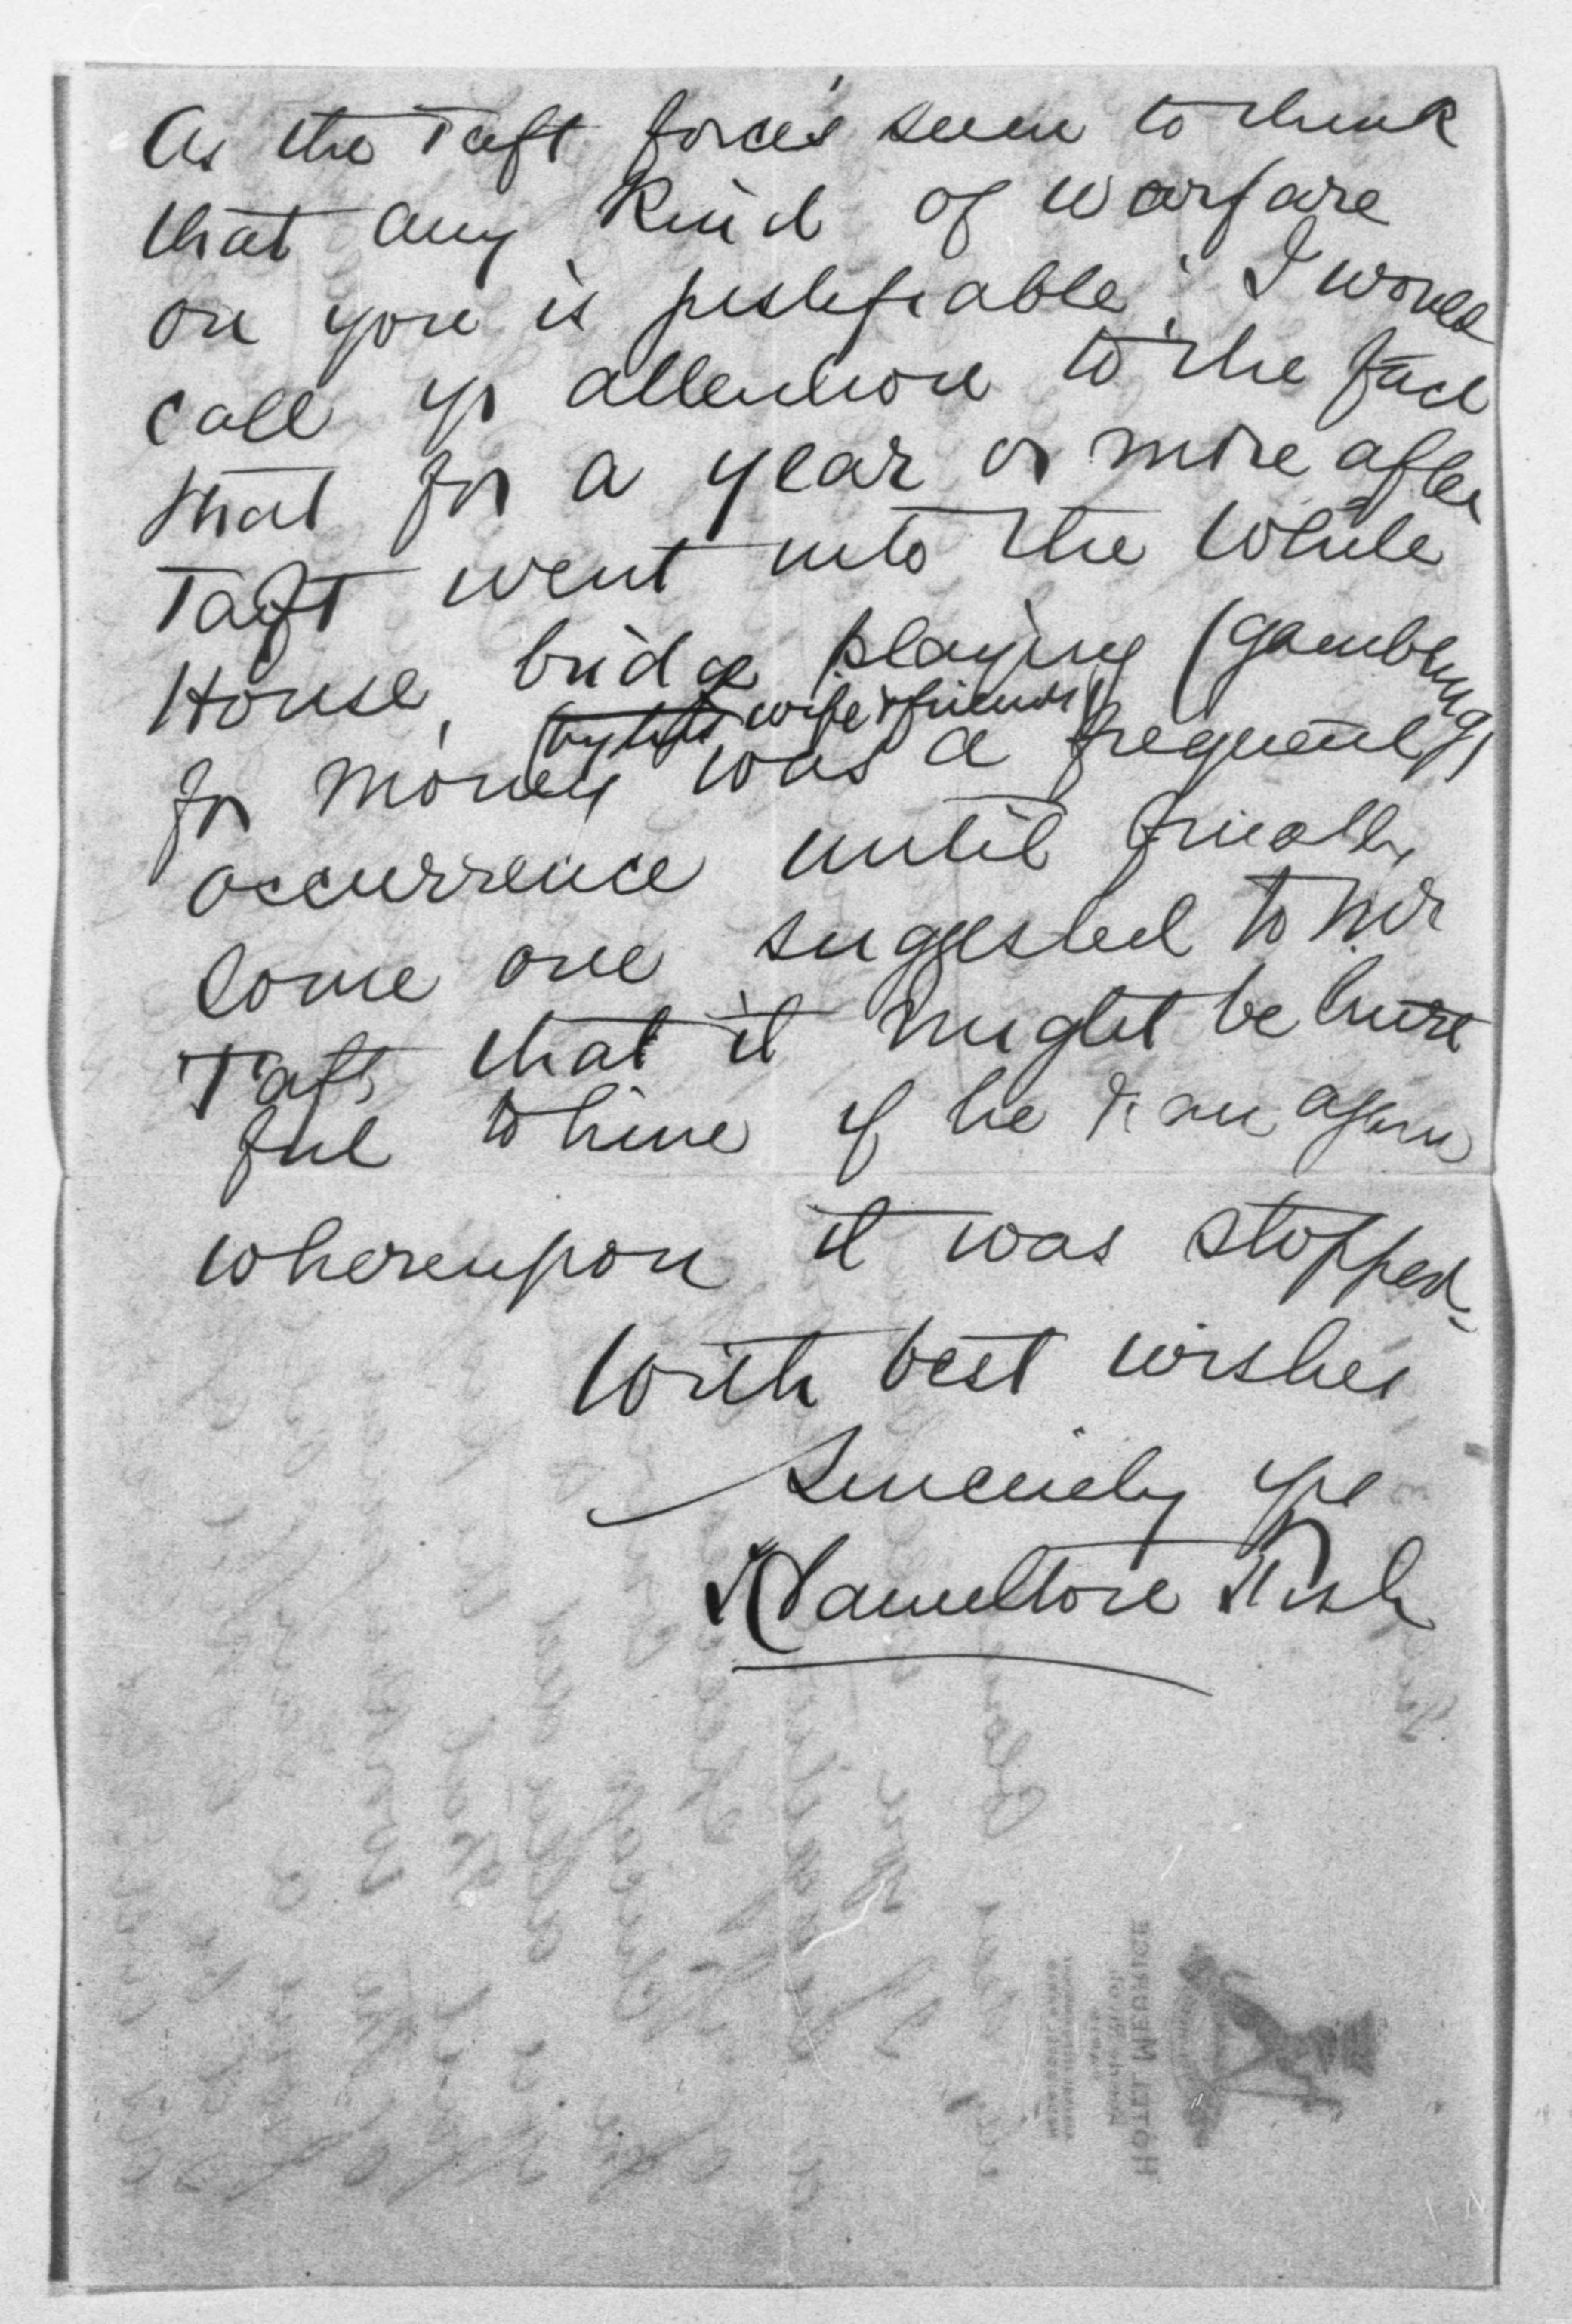 As the Taft forces seem to think
that any kind of warfare
on you is justifiable, I would
call yr attention to the fact
that for a year or more after
Taft went into the White
House, bridge playing (gambling)
(by his wife & friends)
for money was a frequent
occurrence until finally
some one suggested to Mr
Taft that it might be hurt
ful to him if he ran again
whereupon it was stopped-
With best wishes
Sincerely yrs
Hamilton Fish
HOTEL MEURICE